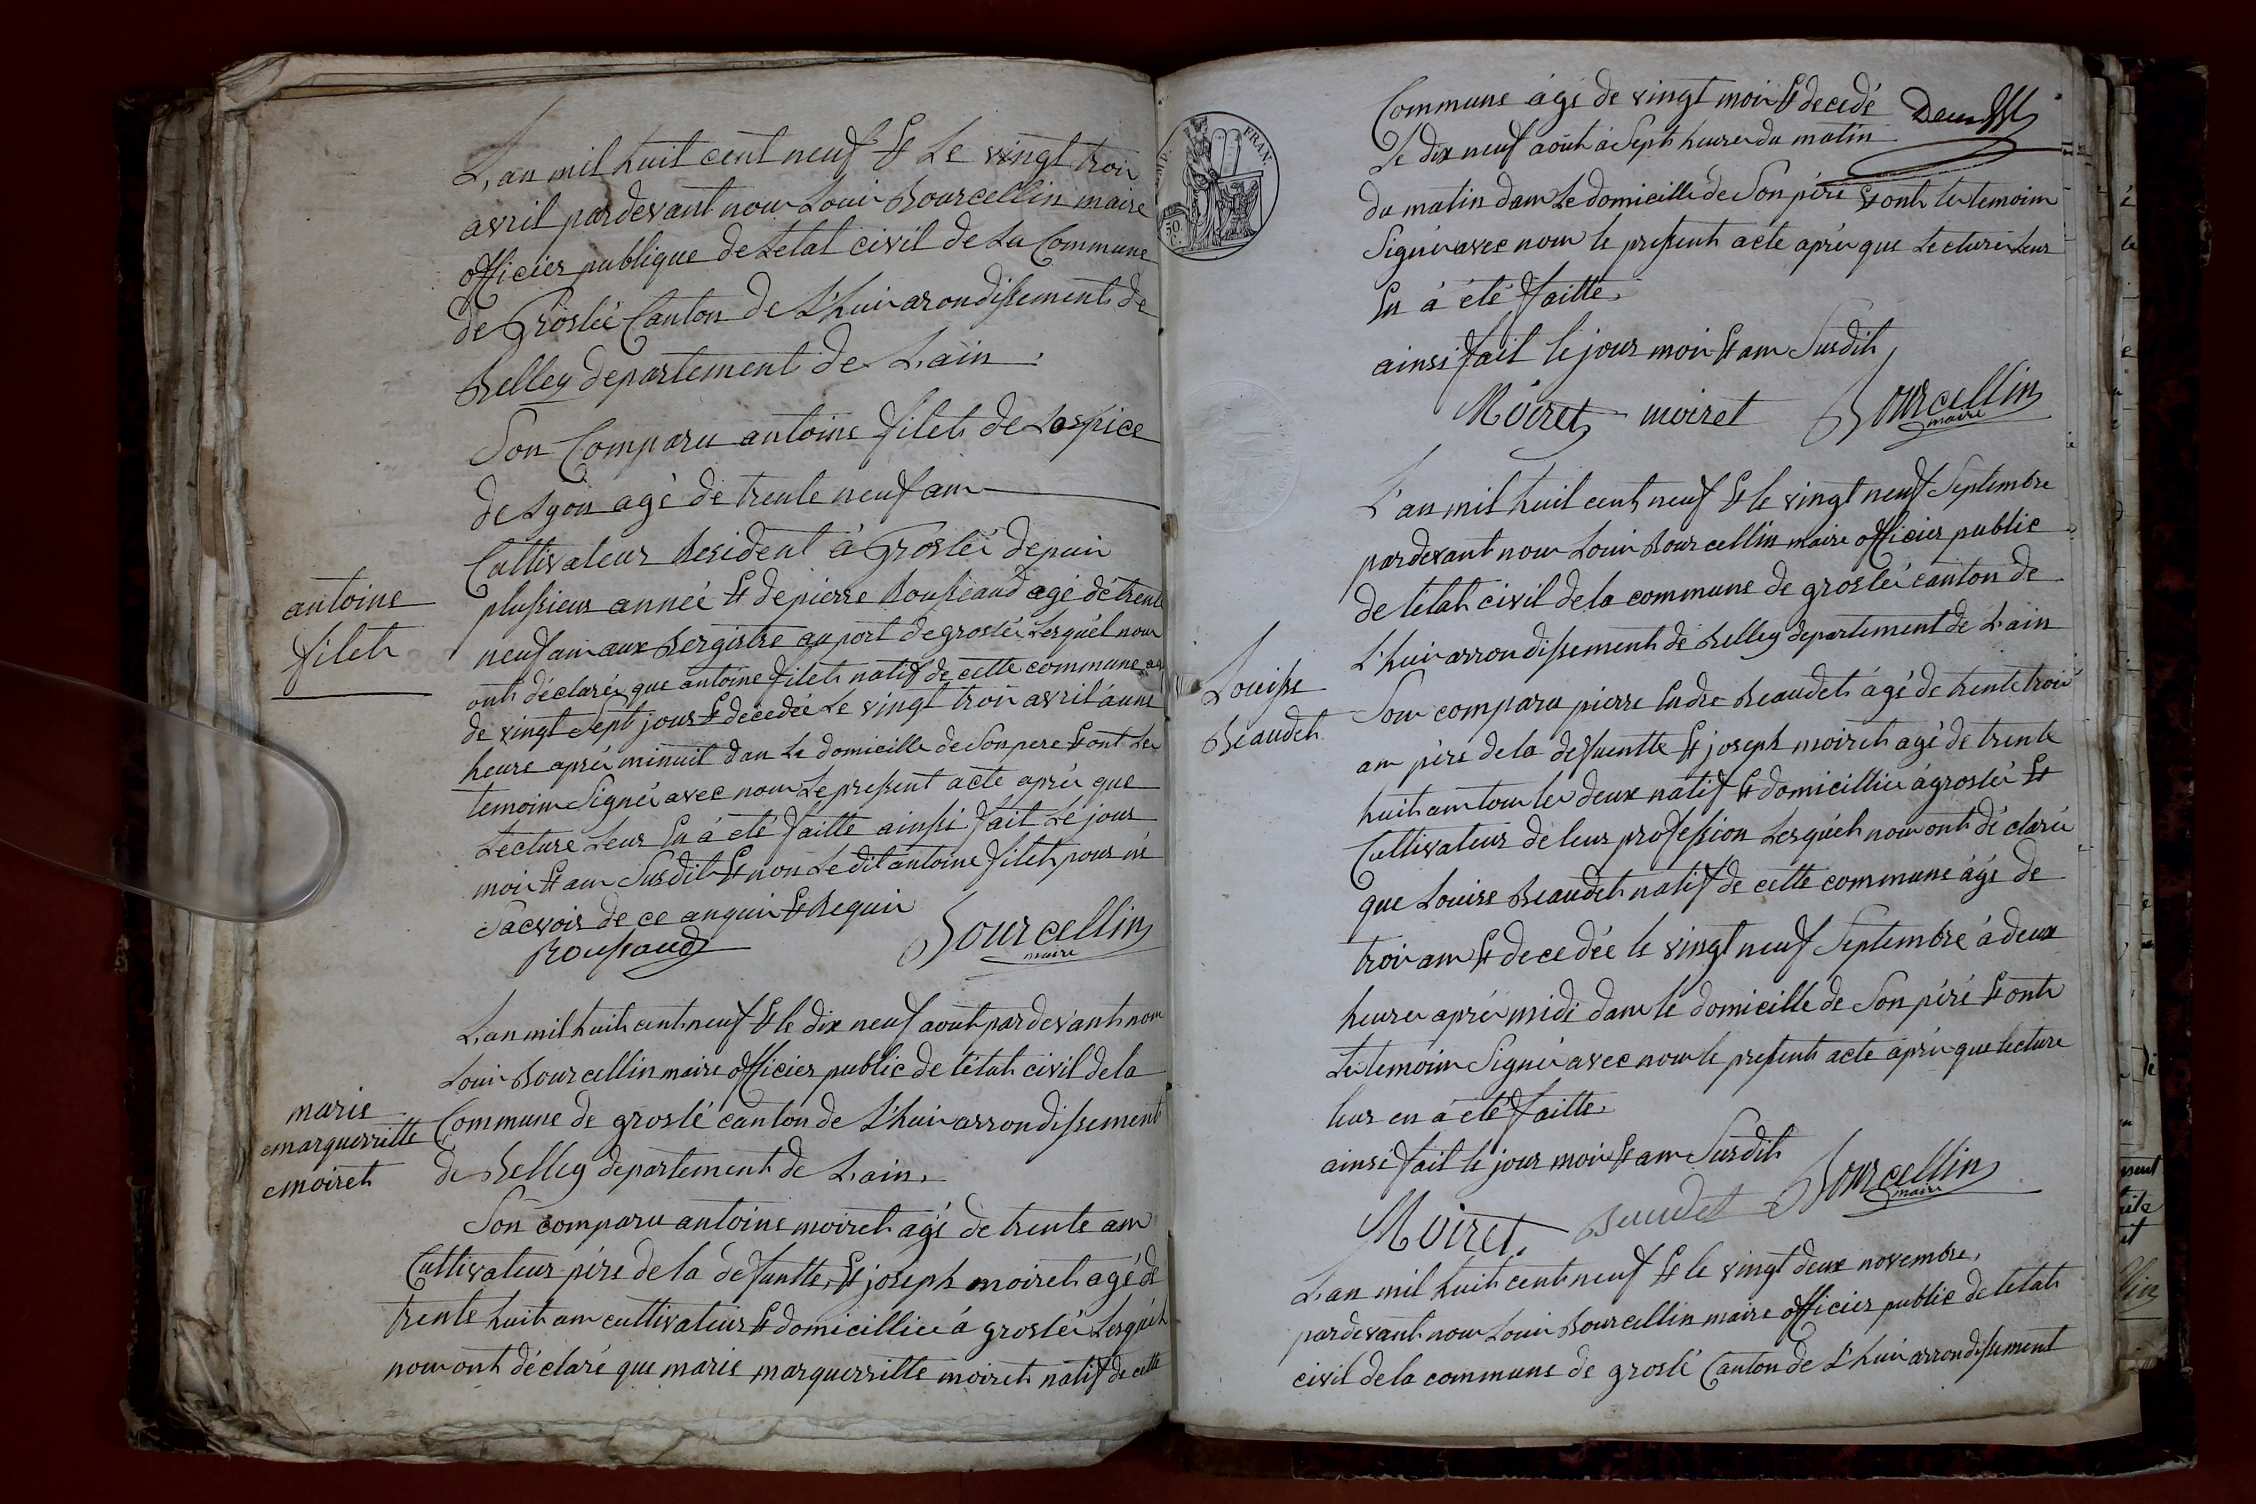 L'an mil huit cent neuf & Le vingt troi
avril pardevant nous Louis Bourcellin maire
officier publique de Letat civil de La Commune
de Groslée Canton de L'huis arondissement de
Belley departement de Lain.
Son Comparu antoine filet de Lospice
de Lyon agé de trente neuf ans
Cultivateur Resident á Groslée depuis
antoine
filet
plusieur année & de pierre Rousseaud agé de trente
neuf ans aux Bergistre au port de groslée Lesquel nous
ont déclarés que antoine filet natif de cette commune
de vingt Sept jours & decedée Le vingt trois avril á une
heure aprés minuit dans Le domicille de Son pere & ont Les
temoins Signés avec nous Le present acte aprés que
Lecture Leur En á eté faitte ainssi fait Le jour
mois & ans Susdit & non Le dit antoine filet pour né
Sacvoir de ce anquis & Requis
Roussaud Bourcellin
maire
L'an mil huit cent neuf & le dix neuf aout pardevant nous
Louis Bourcellin maire officier public de l'état civil de la
marie
marquerritte
moiret
Commune de groslé canton de L'huis arrondissement
de Belley departement de Lain.
Son comparu antoine moiret agé de trente ans
Cultivateur pére de la defuntte, & joseph moiret agé de
trente huit ans cultivateurs & domicilliés á groslée Lesquel
nous ont déclaré que marie marquerritte moiret natif de cette
Commune ágé de vingt mois & decedé
Le dix neuf aoút á Sept heures du matin
du matin dans Le domicille de Son pére & ont les temoins
Signés avec nous le present acte aprés que Lecture Leur
En á été faitte.
ainsi fait le jour mois & ans Susdit
Moiret moiret Bourcellin
maire
L'an mil huit cent neuf & le vingt neuf Septembre
pardevant nous Louis Bourcellin maire officier public
de l'état civil de la commune de groslée canton de
L'huis arrondissement de Belley departement de Lain
Louisse
Beaudet
Sons comparu pierre Endre Beaudet ágé de trente trois
ans pére de la defuentte & joseph moiret agé de trente
huit ans tous les deux natif & domicilliés á groslée &
Cultivateurs de leur profession Lesquels nous ont déclarés
que Louise Beaudet natif de cette commune ágé de
trois ans & decedée le vingt neuf Septembre á deux
heures aprés midi dans le domicille de Son péré & ont
Les temoins Signés avec nous le present acte áprés que lecture
leur en á eté faitte.
ainsi fait le jour mois & ans Susdit
Moiret. Beaudet Bourcellin
maire
L'an mil huit cent neuf & le vingt deux novembre,
pardevant nous Louis Bourcellin maire officier public de letat
civil de la commune de groslé Canton de L'huis arrondissement